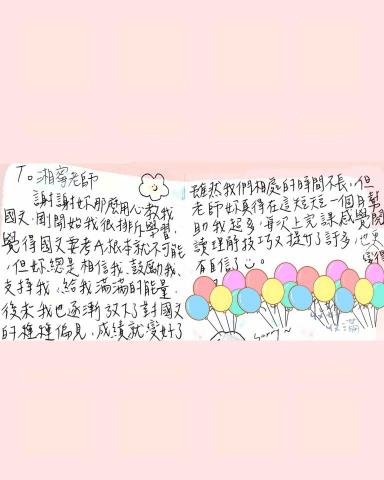 To 湘寗老師
謝謝妳那麼用心教我
國文,剛開始我很排斥學習,
覺得國文要考A根本就不可能
,但妳總是相信我、鼓勵我、
支持我,給我滿滿的能量,
後來我也逐漸放下了對國文
的種種偏見,成績就變好了
雖然我們相處的時間不長,但
老師妳真得在這短短一個月幫
助我超多,每次上完課感覺閱
讀理解技巧又提升了許多,也更
有自信了
覺得
Sorry~